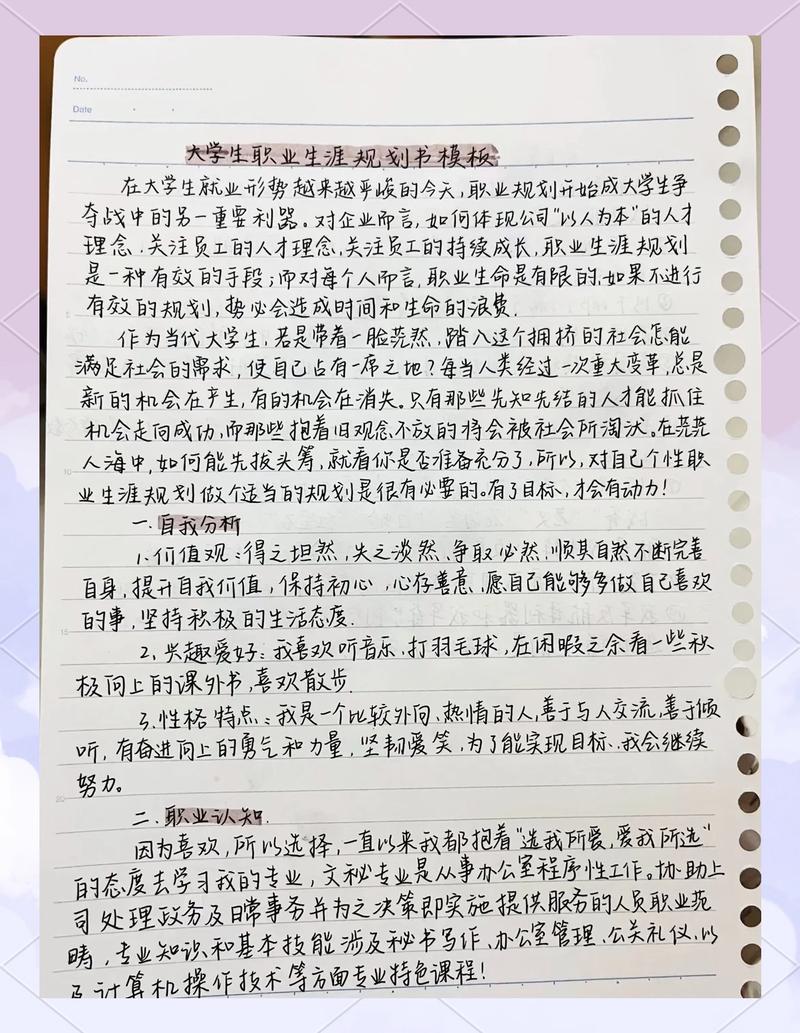 No.
Date
大学生职业生涯规划书模板
在大学生就业形势越来越严峻的今天,职业规划开始成大学生争
夺战中的另一重要利器。对企业而言,如何体现公司“以人为本”的人才
理念,关注员工的人才理念,关注员工的持续成长,职业生涯规划
是一种有效的手段;而对每个人而言,职业生命是有限的,如果不进行
有效的规划,势必会造成时间和生命的浪费.
作为当代大学生,若是带着一脸茫然,踏入这个拥挤的社会怎能
满足社会的需求,使自己占有一席之地?每当人类经过一次重大变革,总是
新的机会在产生,有的机会在消失。只有那些先知先结的人才能抓住
机会走向成功,而那些抱着旧观念不放的将会被社会所淘汰。在茫茫
人海中,如何能先拔头筹,就看你是否准备充分了,所以,对自己个性职
业生涯规划做个适当的规划是很有必要的。有了目标,才会有动力!
一.自我分析
1.价值观:得之坦然,失之淡然、争取必然,顺其自然不断完善
自身,提升自我价值,保持初心,心存善意,愿自己能够多做自己喜欢
的事,坚持积极的生活态度.
2.兴趣爱好:我喜欢听音乐、打羽毛球,在闲暇之余看一些积
极向上的课外书,喜欢散步.
3.性格特点:我是一个比较外向、热情的人,善于与人交流,善于倾
听,有奋进向上的勇气和力量,坚韧爱笑,为了能实现目标,我会继续
努力。
二.职业认知.
因为喜欢,所以选择,一直以来我都抱着“选我所爱,爱我所选”
的态度去学习我的专业,文秘专业是从事办公室程序性工作。协助上
司处理政务及日常事务并为之决策即实施提供服务的人员职业范
畴,专业知识和基本技能涉及秘书写作、办公室管理、公关礼仪、以
及计算机操作技术等方面专业特色课程!